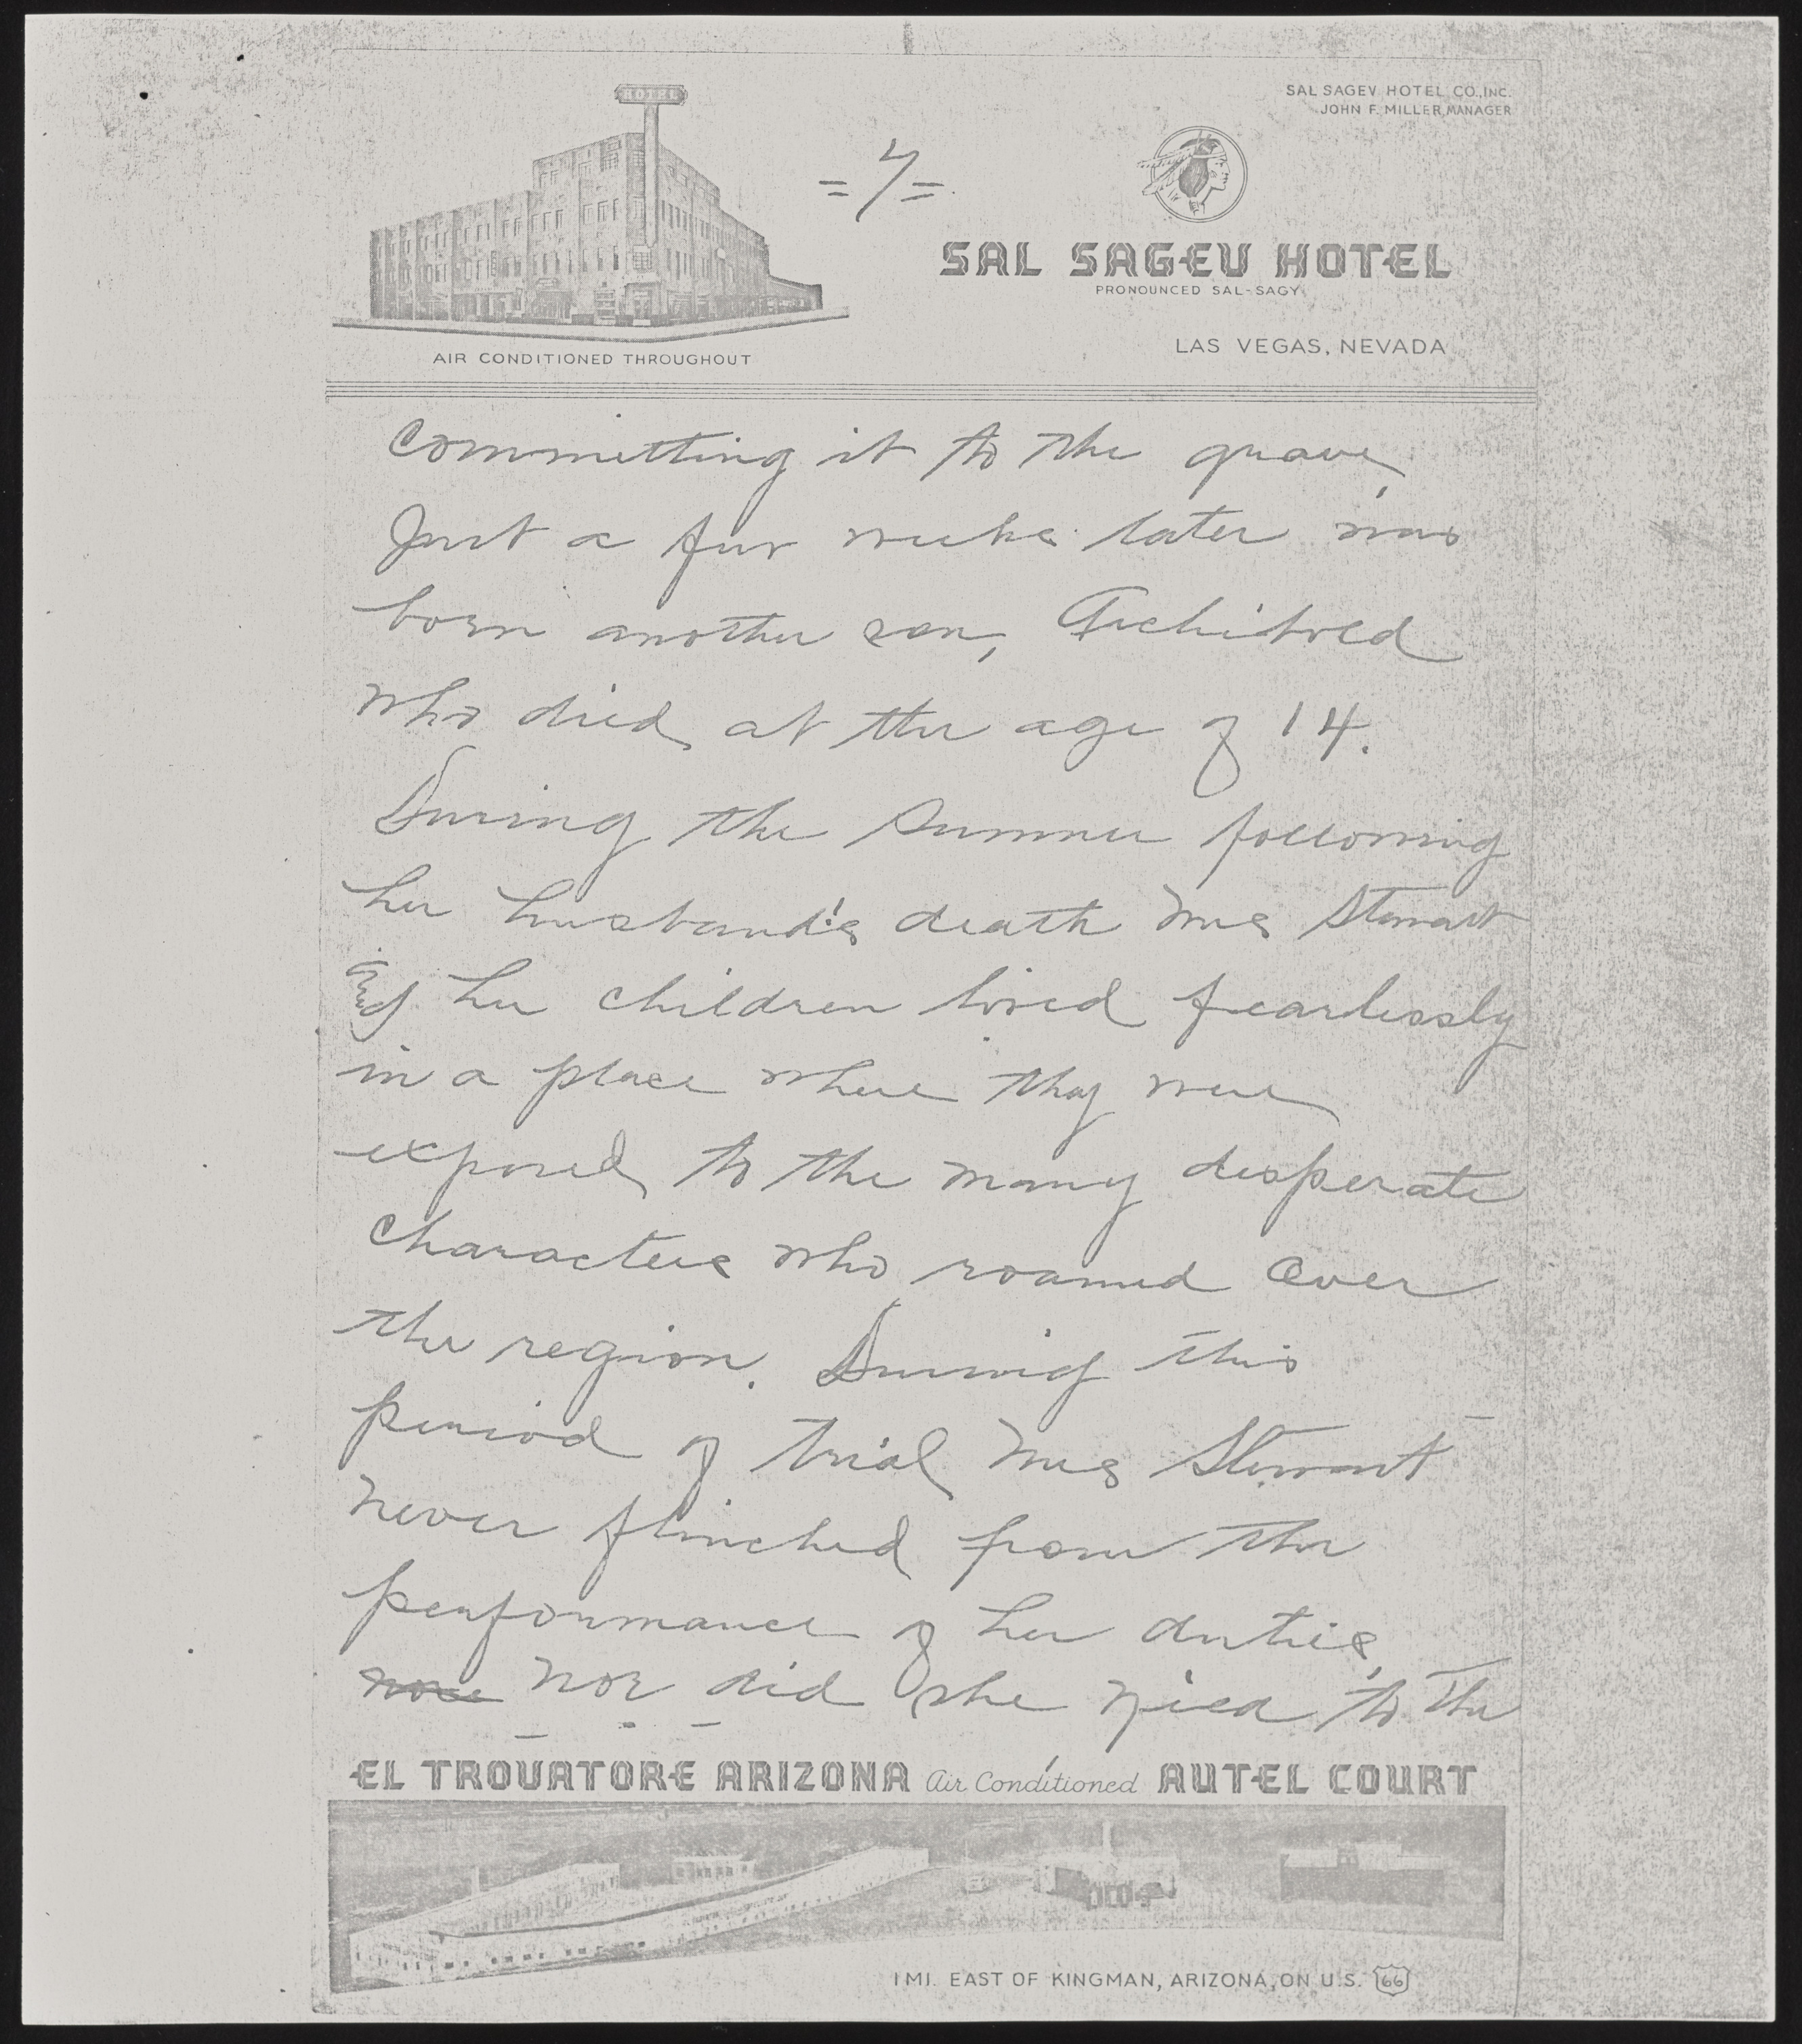 HOTEL
SAL SAGEV HOTEL CO., INC.
JOHN F. MILLER, MANAGER
=7=
SAL SAGEV HOTEL
PRONOUNCED SAL-SAGY
AIR CONDITIONED THROUGHOUT
LAS VEGAS, NEVADA
committing it to the grave,
Just a few weeks later was
born another son, Archibold
who died at the age of 14.
During the summer following
her husband's death Mrs Stewart
and her children lived fearlessly
in a place where they were
exposed to the many desperate
characters who roamed over
the region. During this
period of trial Mrs Stewart
never flinched from the
performance of her duties,
nor did she yied to the
EL TROVATORE ARIZONA Air Conditioned AUTEL COURT
1 MI. EAST OF KINGMAN, ARIZONA, ON U.S. 66